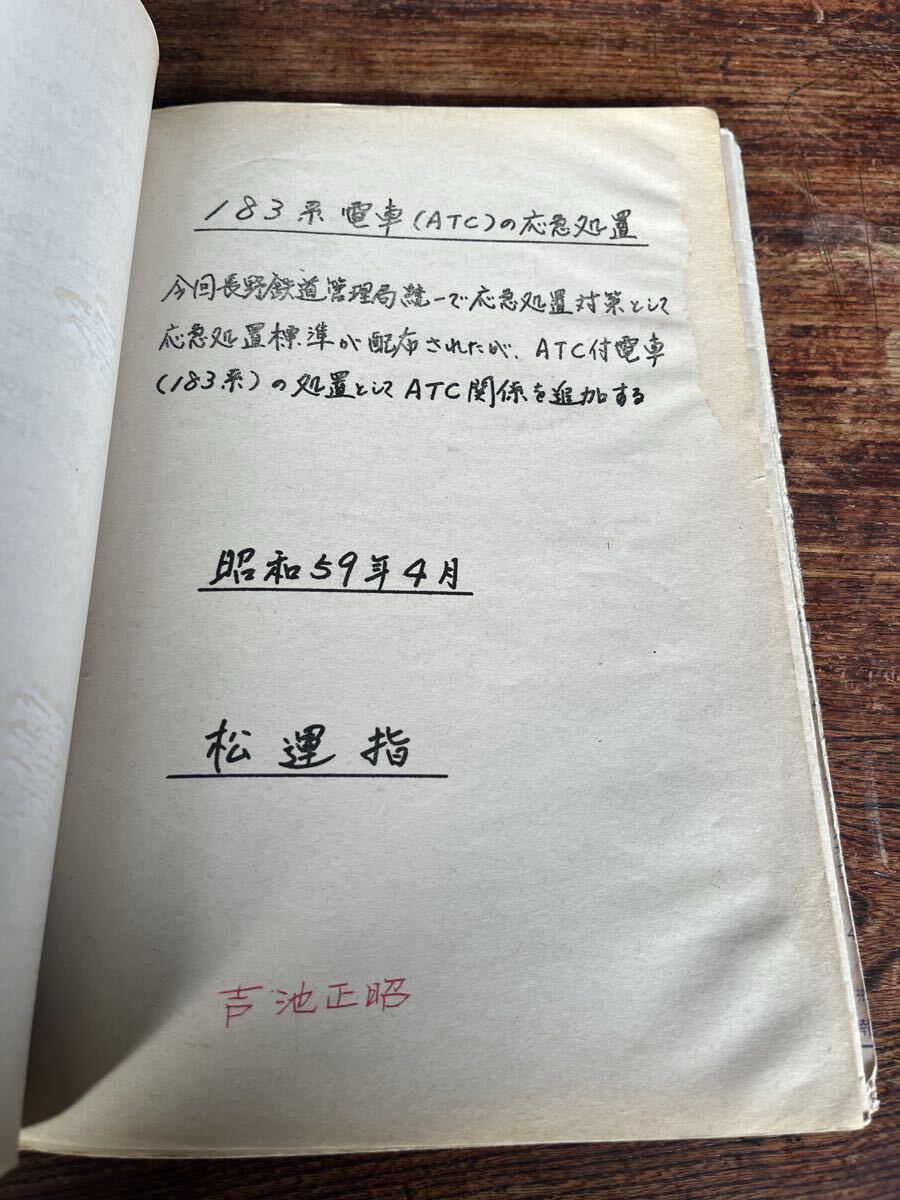 183系電車(ATC)の応急処置
今回長野鉄道管理局統一で応急処置対策として
応急処置標準が配布されたが、ATC付電車
(183系)の処置としてATC関係を追加する
昭和59年4月
松運指
吉池正昭